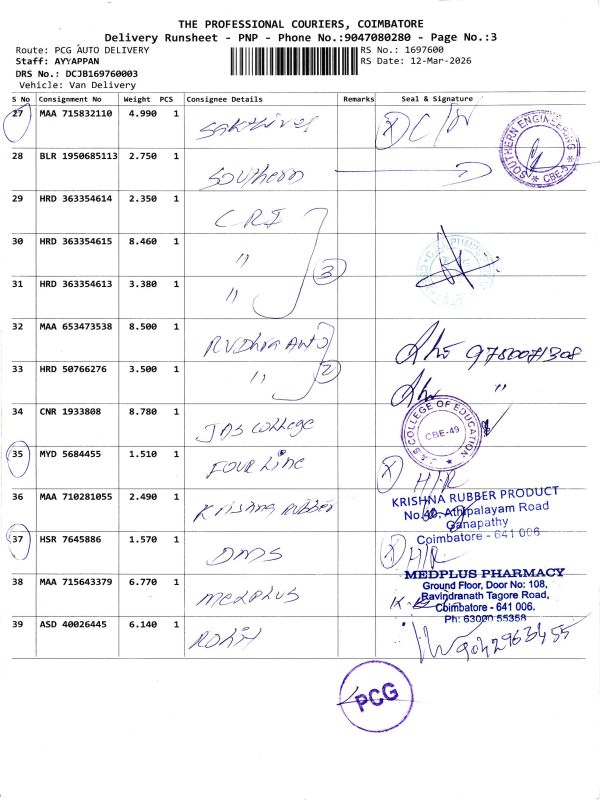 THE PROFESSIONAL COURIERS, COIMBATORE
Delivery Runsheet - PNP - Phone No.:9047080280 - Page No.:3
Route: PCG AUTO DELIVERY RS No.: 1697600
Staff: AYYAPPAN RS Date: 12-Mar-2026
DRS No.: DCJB169760003
Vehicle: Van Delivery
S No Consignment No Weight PCS Consignee Details Remarks Seal & Signature
27 MAA 715832110 4.990 1 Sakthivel
SOUTHERN ENGINEERING
CBE-5
28 BLR 1950685113 2.750 1 Southern
29 HRD 363354614 2.350 1 CRI
30 HRD 363354615 8.460 1 "
3
31 HRD 363354613 3.380 1 "
32 MAA 653473538 8.500 1 Rudhra Auto
2
33 HRD 50766276 3.500 1 " "
34 CNR 1933808 8.780 1 JAS College
COLLEGE OF EDUCATION
CBE-49
35 MYD 5684455 1.510 1 Four Line H/R
36 MAA 710281055 2.490 1 Krishna Rubber
KRISHNA RUBBER PRODUCT
No.40, Athipalayam Road
Ganapathy
Coimbatore - 641 006
37 HSR 7645886 1.570 1 DMS H/R
38 MAA 715643379 6.770 1 Medplus
MEDPLUS PHARMACY
Ground Floor, Door No: 108,
Ravindranath Tagore Road,
Coimbatore - 641 006.
Ph: 63000 55358
39 ASD 40026445 6.140 1 Rohit
PCG